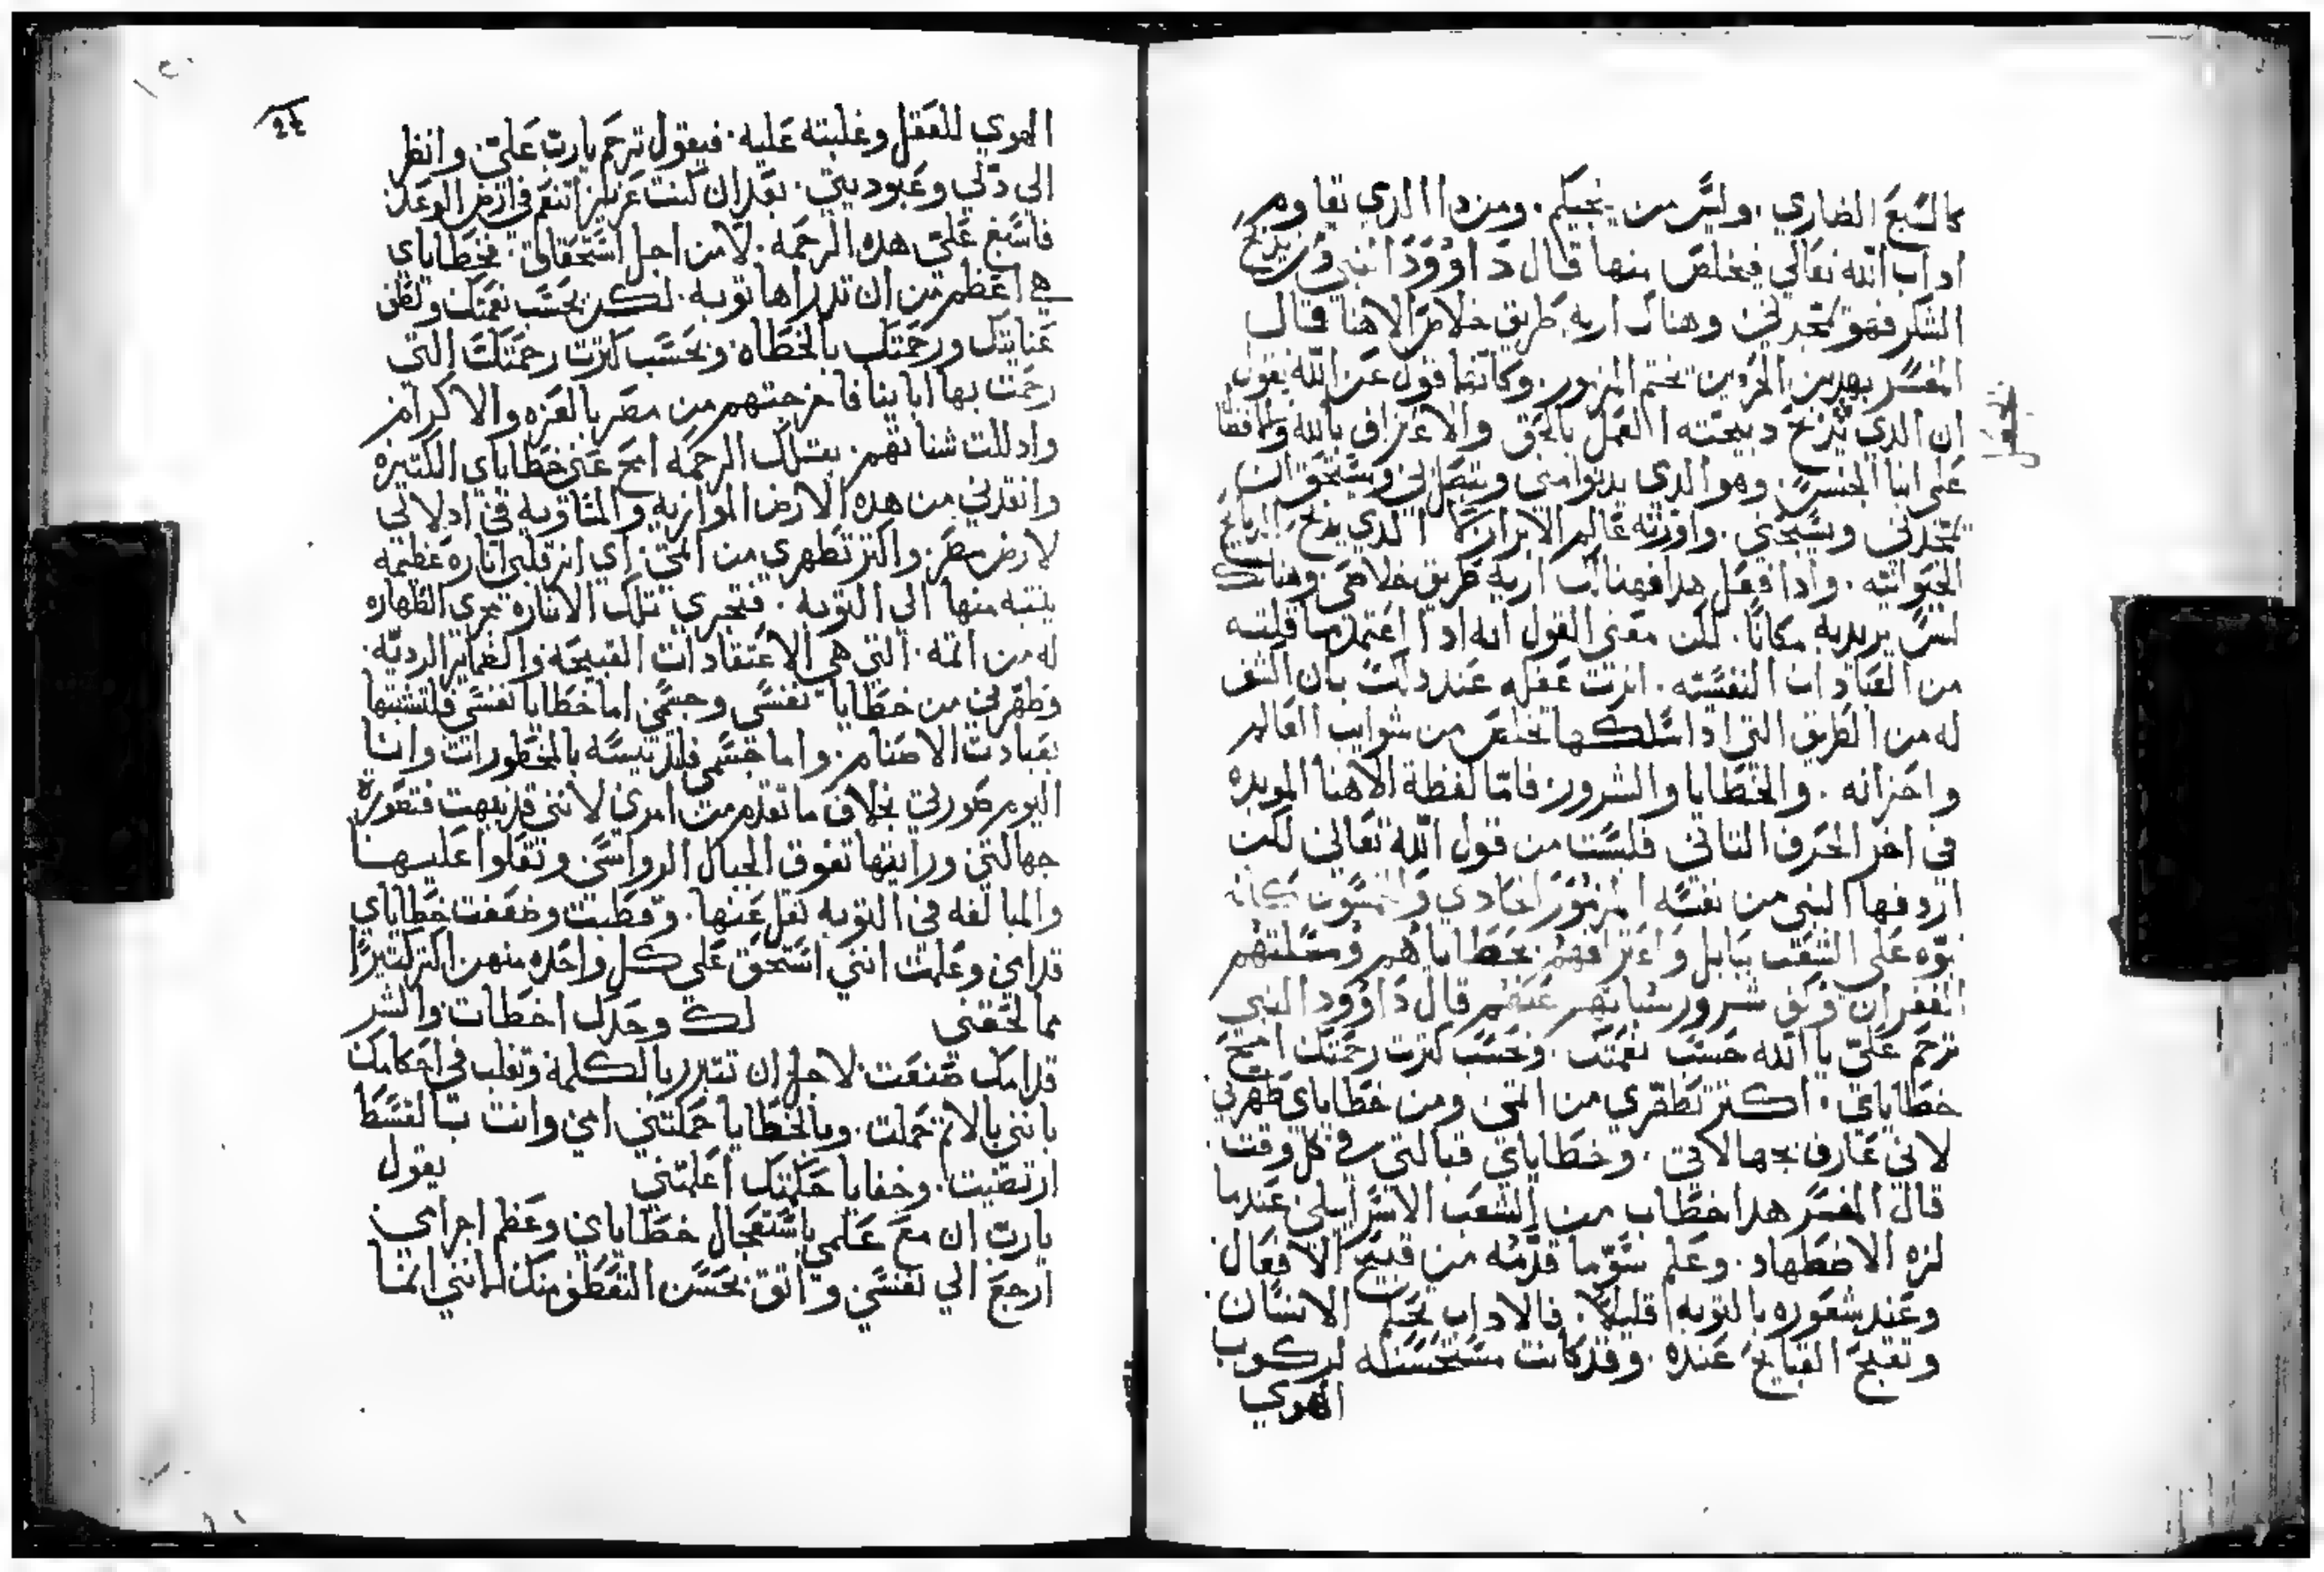 كالسبع الضاري. وليس من ينجيكم. ومن دا الدي يقاوم
اداب الله تعالي فيخلص منها قال داوود النبي ومن يدبح
الشكر فهو يمجدني وهناك اريه طريق خلاص الاهنا قال
المفسر بهدين الحرفين يختم المزمور. وكانهما قول عن الله يقول
ان الدي يدبح دبيحته العمل بالحق والاعتراف بالله
على ابنا الجنس. وهو الدي يدنوا مني ويتصل بي ويستحق ان
يمجدني ويسبحني. واورته عالم الابرار لا الدي يدبح الدبايح
الحيوانيه. وادا فعل هدا فهناك اريه طريق خلاصي وهناك
ليس يريد به مكانا. لكن معني القول انه ادا اعتمد ما قلته
من العبادات النفسيه. انرت عقله عند دلك بان اكشف
له من الطريق التي ادا سلكها تخلص من شوايب العالم
واحزانه. والخطايا والشرور. فاما لفظة الاهنا الموبده
في اخر الحرف التاني فليست من قول الله تعالي لكن
اردفها النبي من نفسه المزمور الحادي والخمسون كانه
نوه على الشعب ببابل واعترافهم بخطاياهم ومسلتهم
الغفران وكف شرور شناتهم عنهم قال داوود النبي
ترحم علىّ يا الله حسب نعمتك. وحسب كترت رحمتك امح
خطاياي. اكتر تطهري من اتمي ومن خطاياي طهرني
لاني عارف بجهالاتي. وخطاياي قبالتي في كل وقت
قال المفسر هدا خطاب من الشعب الاسراييلي عندما
لزه الاضطهاد. وعلم سوّ ما قدّمه من قبيح الافعال
وعند شعوره بالتوبه قليلا. فالاداب تحكم الانسان
وتقبح القبايح عنده. وقد كانت مستحسنه لركوب
الهوي
24
الهوي للعقل وغلبته عليه. فيقول ترحم يارب علىّ. وانظر
الي دلي وعبوديتي. بعد ان كنت عزيزا اتنعم في ارض الوعد
فاسبغ علىّ هده الرحمه. لا من اجل استحقاقي. فخطاياي
هي اعظم من ان تدراها توبه. لكن بحسب نعمتك ولطف
عنايتك ورحمتك بالخطاه. وبحسب كترت رحمتك التي
رحمت بها اباينا فاخرجتهم من مصر بالعزه والاكرام
وادللت شناتهم. بتلك الرحمه امح عني خطاياي الكتيره
وانقدني من هده الارض الموازيه والمناويه في ادلالي
لارض مصر. واكتر تطهري من اتمي. اي انر قلبي اناره عظيمه
ينتبه منها الي التوبه. فتجري تلك الاناره مجري الطهاره
له من اتمه. التي هي الاعتقادات القبيحه والضماير الرديّه.
وطهرني من خطايا نفسي وجسمي اما خطايا نفسي فلتشبتها
بعبادت الاصنام. واما جسمي فلتدنيسه بالمحظورات وانا
اليوم صورتي بخلاف ما تقدم من امري لانني قد نبهت فتصورت
جهالتي ورايتها تفوق الجبال الرواسي. وتعلوا عليها
والمبالغه في التوبه تقل عنها. وقطبت وضعفت خطاياي
قدامي وعلمت انني استحق على كل واحده منهن اكتر كتيرًا
مما لحقني لك وحدك اخطات والشر
قدامك صنعت. لاجل ان تتبرر بالكلمه وتغلب في احكامك
بانني بالاتم حملت. وبالخطايا حملتني امي وانت بالقسط
ارتضيت. وخفايا حكمتك اعلمتني يقول
يارب ان مع علمي باستعجال خطاياي وعظم اجرامي.
ارجع الي نفسي واتق بحسن التعطف منك لانني انما